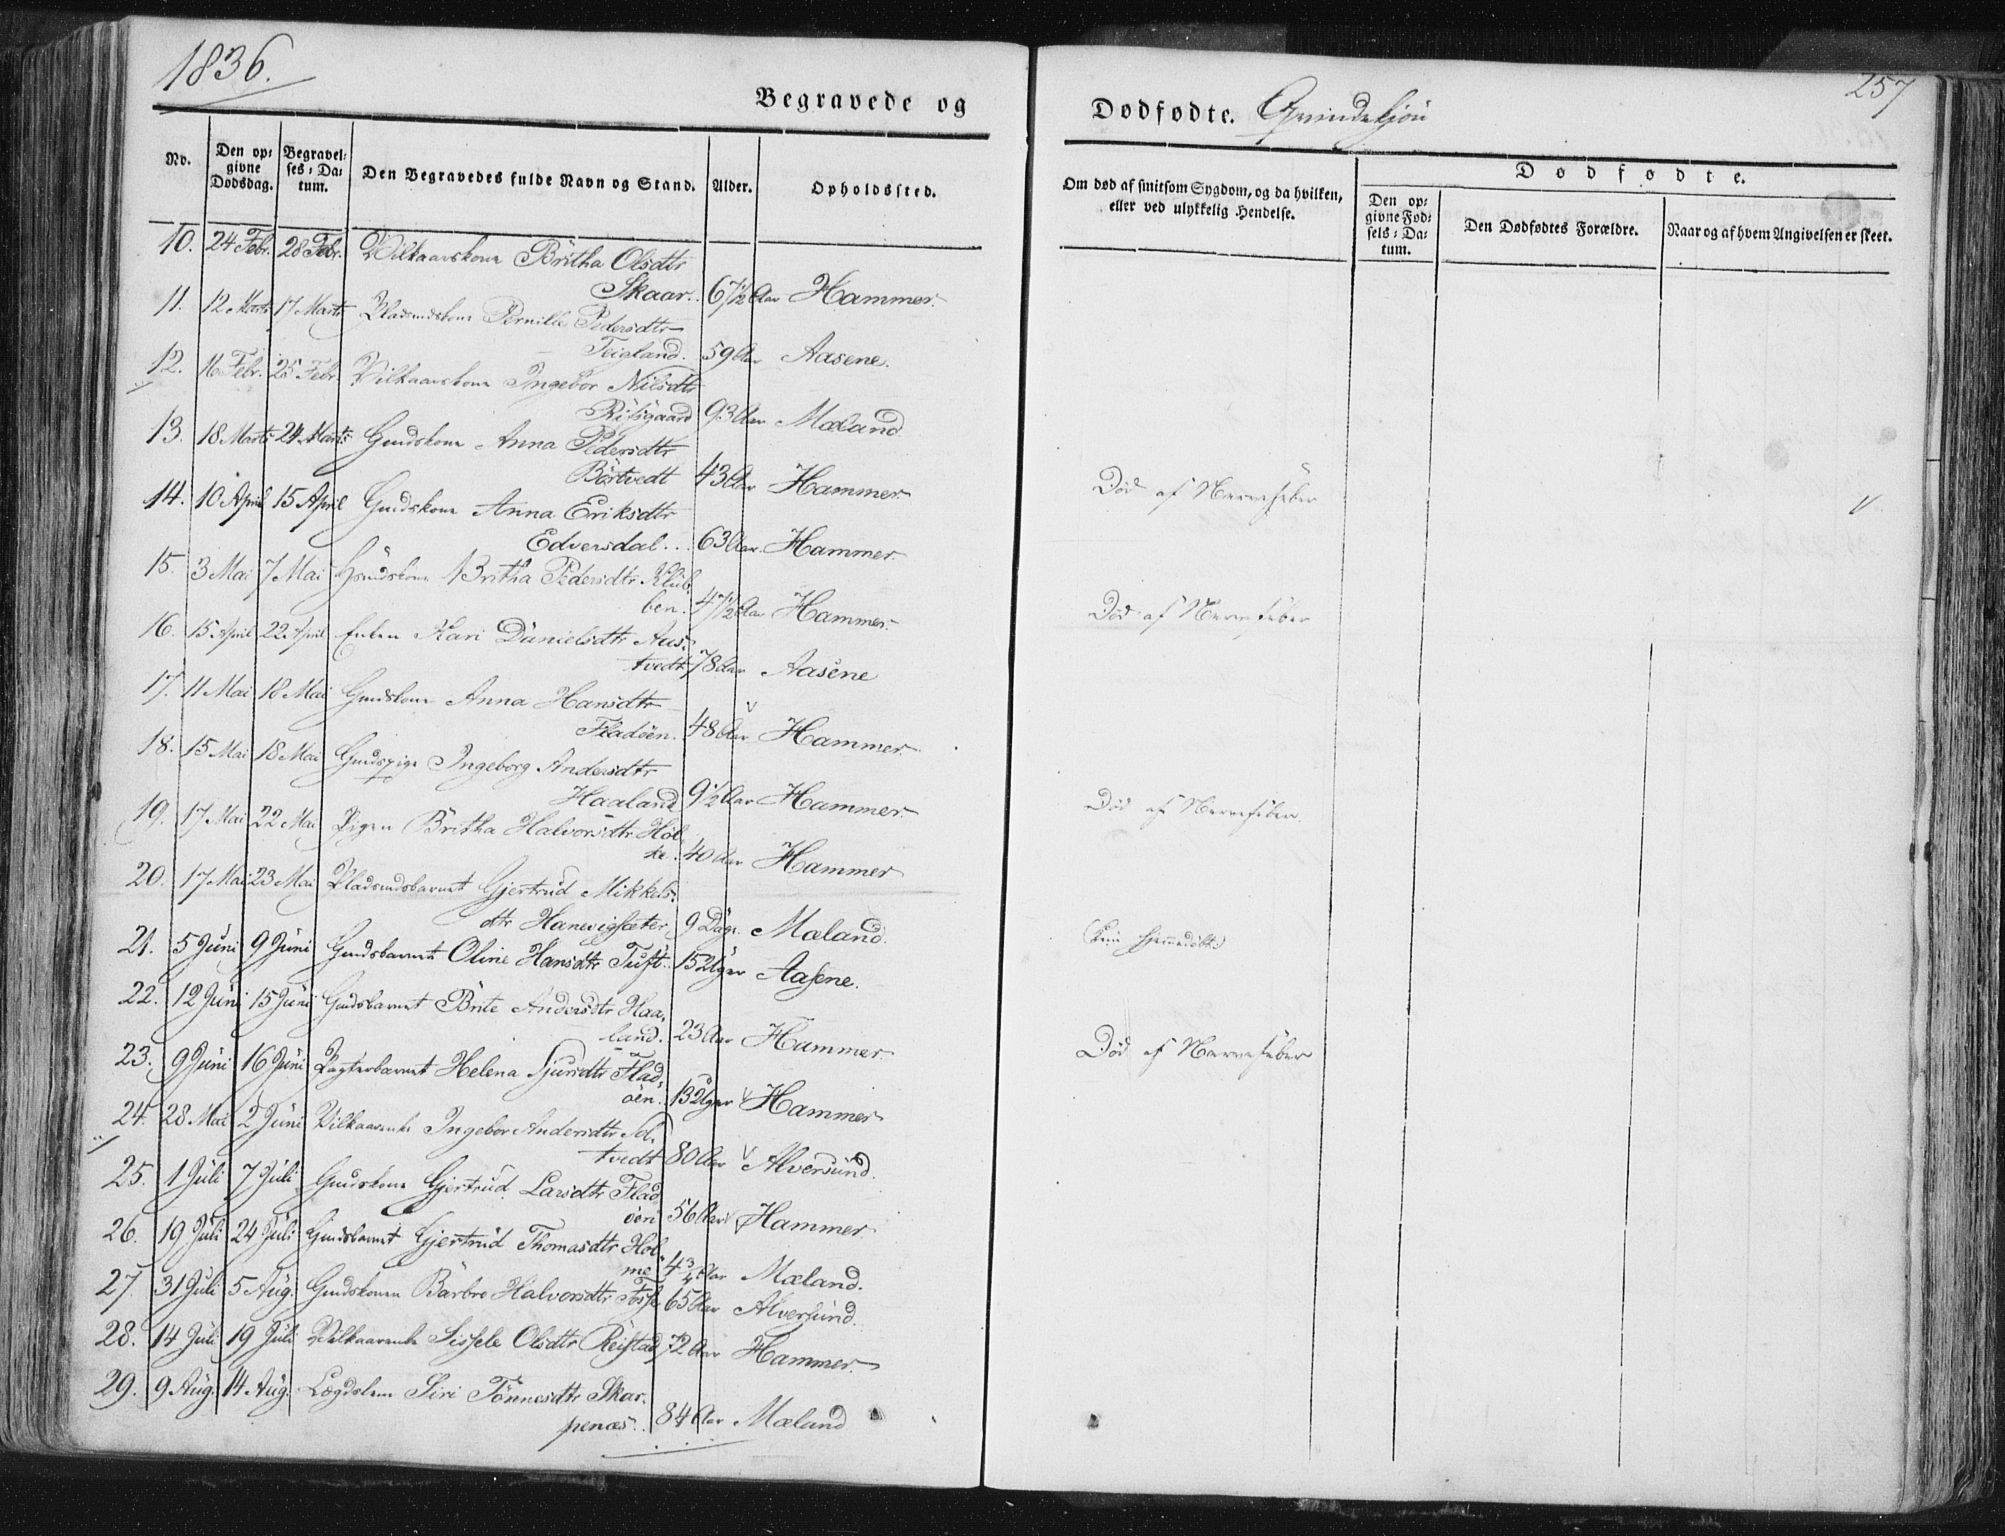 1836.
257
Begravede og
Dødfødte. Qvindekjøn
No.
Den op-
givne
Dødsdag.
Begravel-
ses-Da-
tum.
Den Begravedes fulde Navn og Stand.
Alder.
Opholdssted.
Om død af smitsom Sygdom, og da hvilken,
eller ved ulykkelig Hendelse.
Dødfødte.
Den op-
givne Fød-
sels-Da-
tum.
Den Dødfødtes Forældre.
Naar og af hvem Angivelsen er skeet.
10. 24 Febr. 28 Febr. Vilkaarskone Britha Olsdtr
Skaar. 67½ Aar Hammer.
11. 12 Marts 17 Marts Pladsmdskone Pernille Pedersdtr
Teigland. 59 Aar Aasene.
12. 16 Febr. 25 Febr. Vilkaarskone Ingebor Nilsdtr
Risgaard 93 Aar Mæland
13. 18 Marts 24 Marts Gmdskone Anna Pedersdtr
Börtvedt 43 Aar Hammer. Död af Nervefeber
14. 10 April 15 April Gmdskone Anna Eriksdtr
Edversdal... 63 Aar. Hammer.
15. 3 Mai 7 Mai Hsmdskone Britha Pedersdtr Klüb-
ben. 47½ Aar Hammer. Död af Nervefeber
16. 15 April 22 April Enken Kari Danielsdtr Aus-
tvedt 78 Aar Aasene
17. 11 Mai 18 Mai Gmdskone Anna Hansdtr
Fladöen. 48 Aar Hammer
18. 15 Mai 18 Mai Gmdspige Ingeborg Andersdtr
Haaland 9½ Aar Hammer. Död af Nervefeber.
19. 17 Mai 22 Mai Pigen Britha Halvorsdtr Hol-
te. 40 Aar Hammer
20. 17 Mai 23 Mai Pladsmdsbarnet Gjertrud Mikkels-
dtr Hanevigsæter 9 Dage. Mæland. (kun hjemmedöbt)
21. 5 Juni 9 Juni Gmdsbarnet Oline Hansdtr Tuft. 15 Uger Aasene.
22. 12 Juni 15 Juni Gmdsbarnet Brite Andersdtr Haa-
land. 23 Aar Hammer Död af Nervefeber
23. 9 Juni 16 Juni Pagterbarnet Helena Sjursdtr Flad-
öen. 13 Uger Hammer
24. 28 Mai 2 Juni Vilkaarenke Ingebor Andersdtr Sol-
tvedt 80 Aar Alversund.
25. 1 Juli 7 Juli Gmdskone Gjertrud Larsdtr Flad-
öen 56 Aar Hammer
26. 19 Juli 24 Juli Gmdsbarnet Gjertrud Thomasdtr Hol-
me 4¾ Aar Mæland.
27. 31 Juli 5 Aug. Gmdskonen Barbro Halvorsdtr Fosse 65 Aar Alversund.
28. 14 Juli 19 Juli Vilkaarenke Sissele Olsdtr Reistad 72 Aar Hammer.
29. 9 Aug. 14 Aug. Lægdslem Siri Tönnesdtr Skar-
penæs.. 84 Aar Mæland